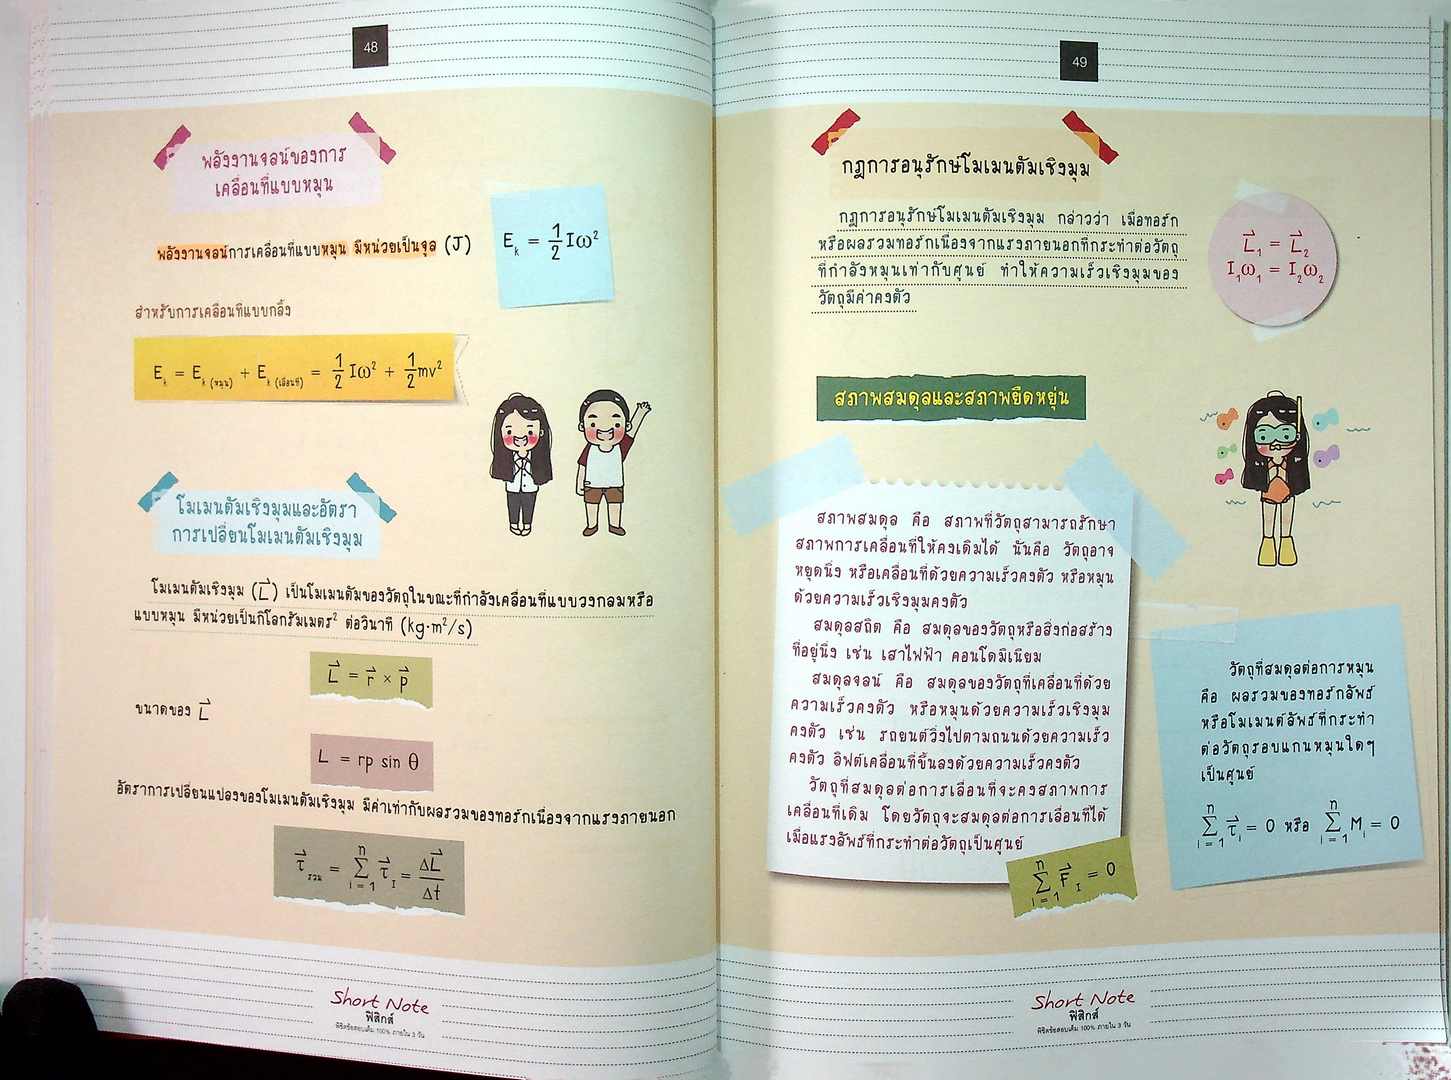 48
พลังงานจลน์ของการ
เคลื่อนที่แบบหมุน
พลังงานจลน์การเคลื่อนที่แบบหมุน มีหน่วยเป็นจูล (J)
E_k = 1/2 Iω²
สำหรับการเคลื่อนที่แบบกลิ้ง
E_k = E_k (หมุน) + E_k (เลื่อนที่) = 1/2 Iω² + 1/2 mv²
โมเมนตัมเชิงมุมและอัตรา
การเปลี่ยนโมเมนตัมเชิงมุม
โมเมนตัมเชิงมุม (L⃗) เป็นโมเมนตัมของวัตถุในขณะที่กำลังเคลื่อนที่แบบวงกลมหรือ
แบบหมุน มีหน่วยเป็นกิโลกรัมเมตร² ต่อวินาที (kg·m²/s)
L⃗ = r⃗ × p⃗
ขนาดของ L⃗
L = rp sin θ
อัตราการเปลี่ยนแปลงของโมเมนตัมเชิงมุม มีค่าเท่ากับผลรวมของทอร์กเนื่องจากแรงภายนอก
τ⃗_รวม = Σ_{i = 1}^{n} τ⃗_I = ΔL⃗/Δt
Short Note
ฟิสิกส์
พิชิตข้อสอบเต็ม 100% ภายใน 3 วัน
49
กฎการอนุรักษ์โมเมนตัมเชิงมุม
กฎการอนุรักษ์โมเมนตัมเชิงมุม กล่าวว่า เมื่อทอร์ก
หรือผลรวมทอร์กเนื่องจากแรงภายนอกที่กระทำต่อวัตถุ
ที่กำลังหมุนเท่ากับศูนย์ ทำให้ความเร็วเชิงมุมของ
วัตถุมีค่าคงตัว
L⃗₁ = L⃗₂
I₁ω₁ = I₂ω₂
สภาพสมดุลและสภาพยืดหยุ่น
สภาพสมดุล คือ สภาพที่วัตถุสามารถรักษา
สภาพการเคลื่อนที่ให้คงเดิมได้ นั่นคือ วัตถุอาจ
หยุดนิ่ง หรือเคลื่อนที่ด้วยความเร็วคงตัว หรือหมุน
ด้วยความเร็วเชิงมุมคงตัว
สมดุลสถิต คือ สมดุลของวัตถุหรือสิ่งก่อสร้าง
ที่อยู่นิ่ง เช่น เสาไฟฟ้า คอนโดมิเนียม
สมดุลจลน์ คือ สมดุลของวัตถุที่เคลื่อนที่ด้วย
ความเร็วคงตัว หรือหมุนด้วยความเร็วเชิงมุม
คงตัว เช่น รถยนต์วิ่งไปตามถนนด้วยความเร็ว
คงตัว ลิฟต์เคลื่อนที่ขึ้นลงด้วยความเร็วคงตัว
วัตถุที่สมดุลต่อการเลื่อนที่จะคงสภาพการ
เคลื่อนที่เดิม โดยวัตถุจะสมดุลต่อการเลื่อนที่ได้
เมื่อแรงลัพธ์ที่กระทำต่อวัตถุเป็นศูนย์
Σ_{i = 1}^{n} F⃗_I = 0
วัตถุที่สมดุลต่อการหมุน
คือ ผลรวมของทอร์กลัพธ์
หรือโมเมนต์ลัพธ์ที่กระทำ
ต่อวัตถุรอบแกนหมุนใดๆ
เป็นศูนย์
Σ_{i = 1}^{n} τ⃗_i = 0 หรือ Σ_{i = 1}^{n} M_i = 0
Short Note
ฟิสิกส์
พิชิตข้อสอบเต็ม 100% ภายใน 3 วัน